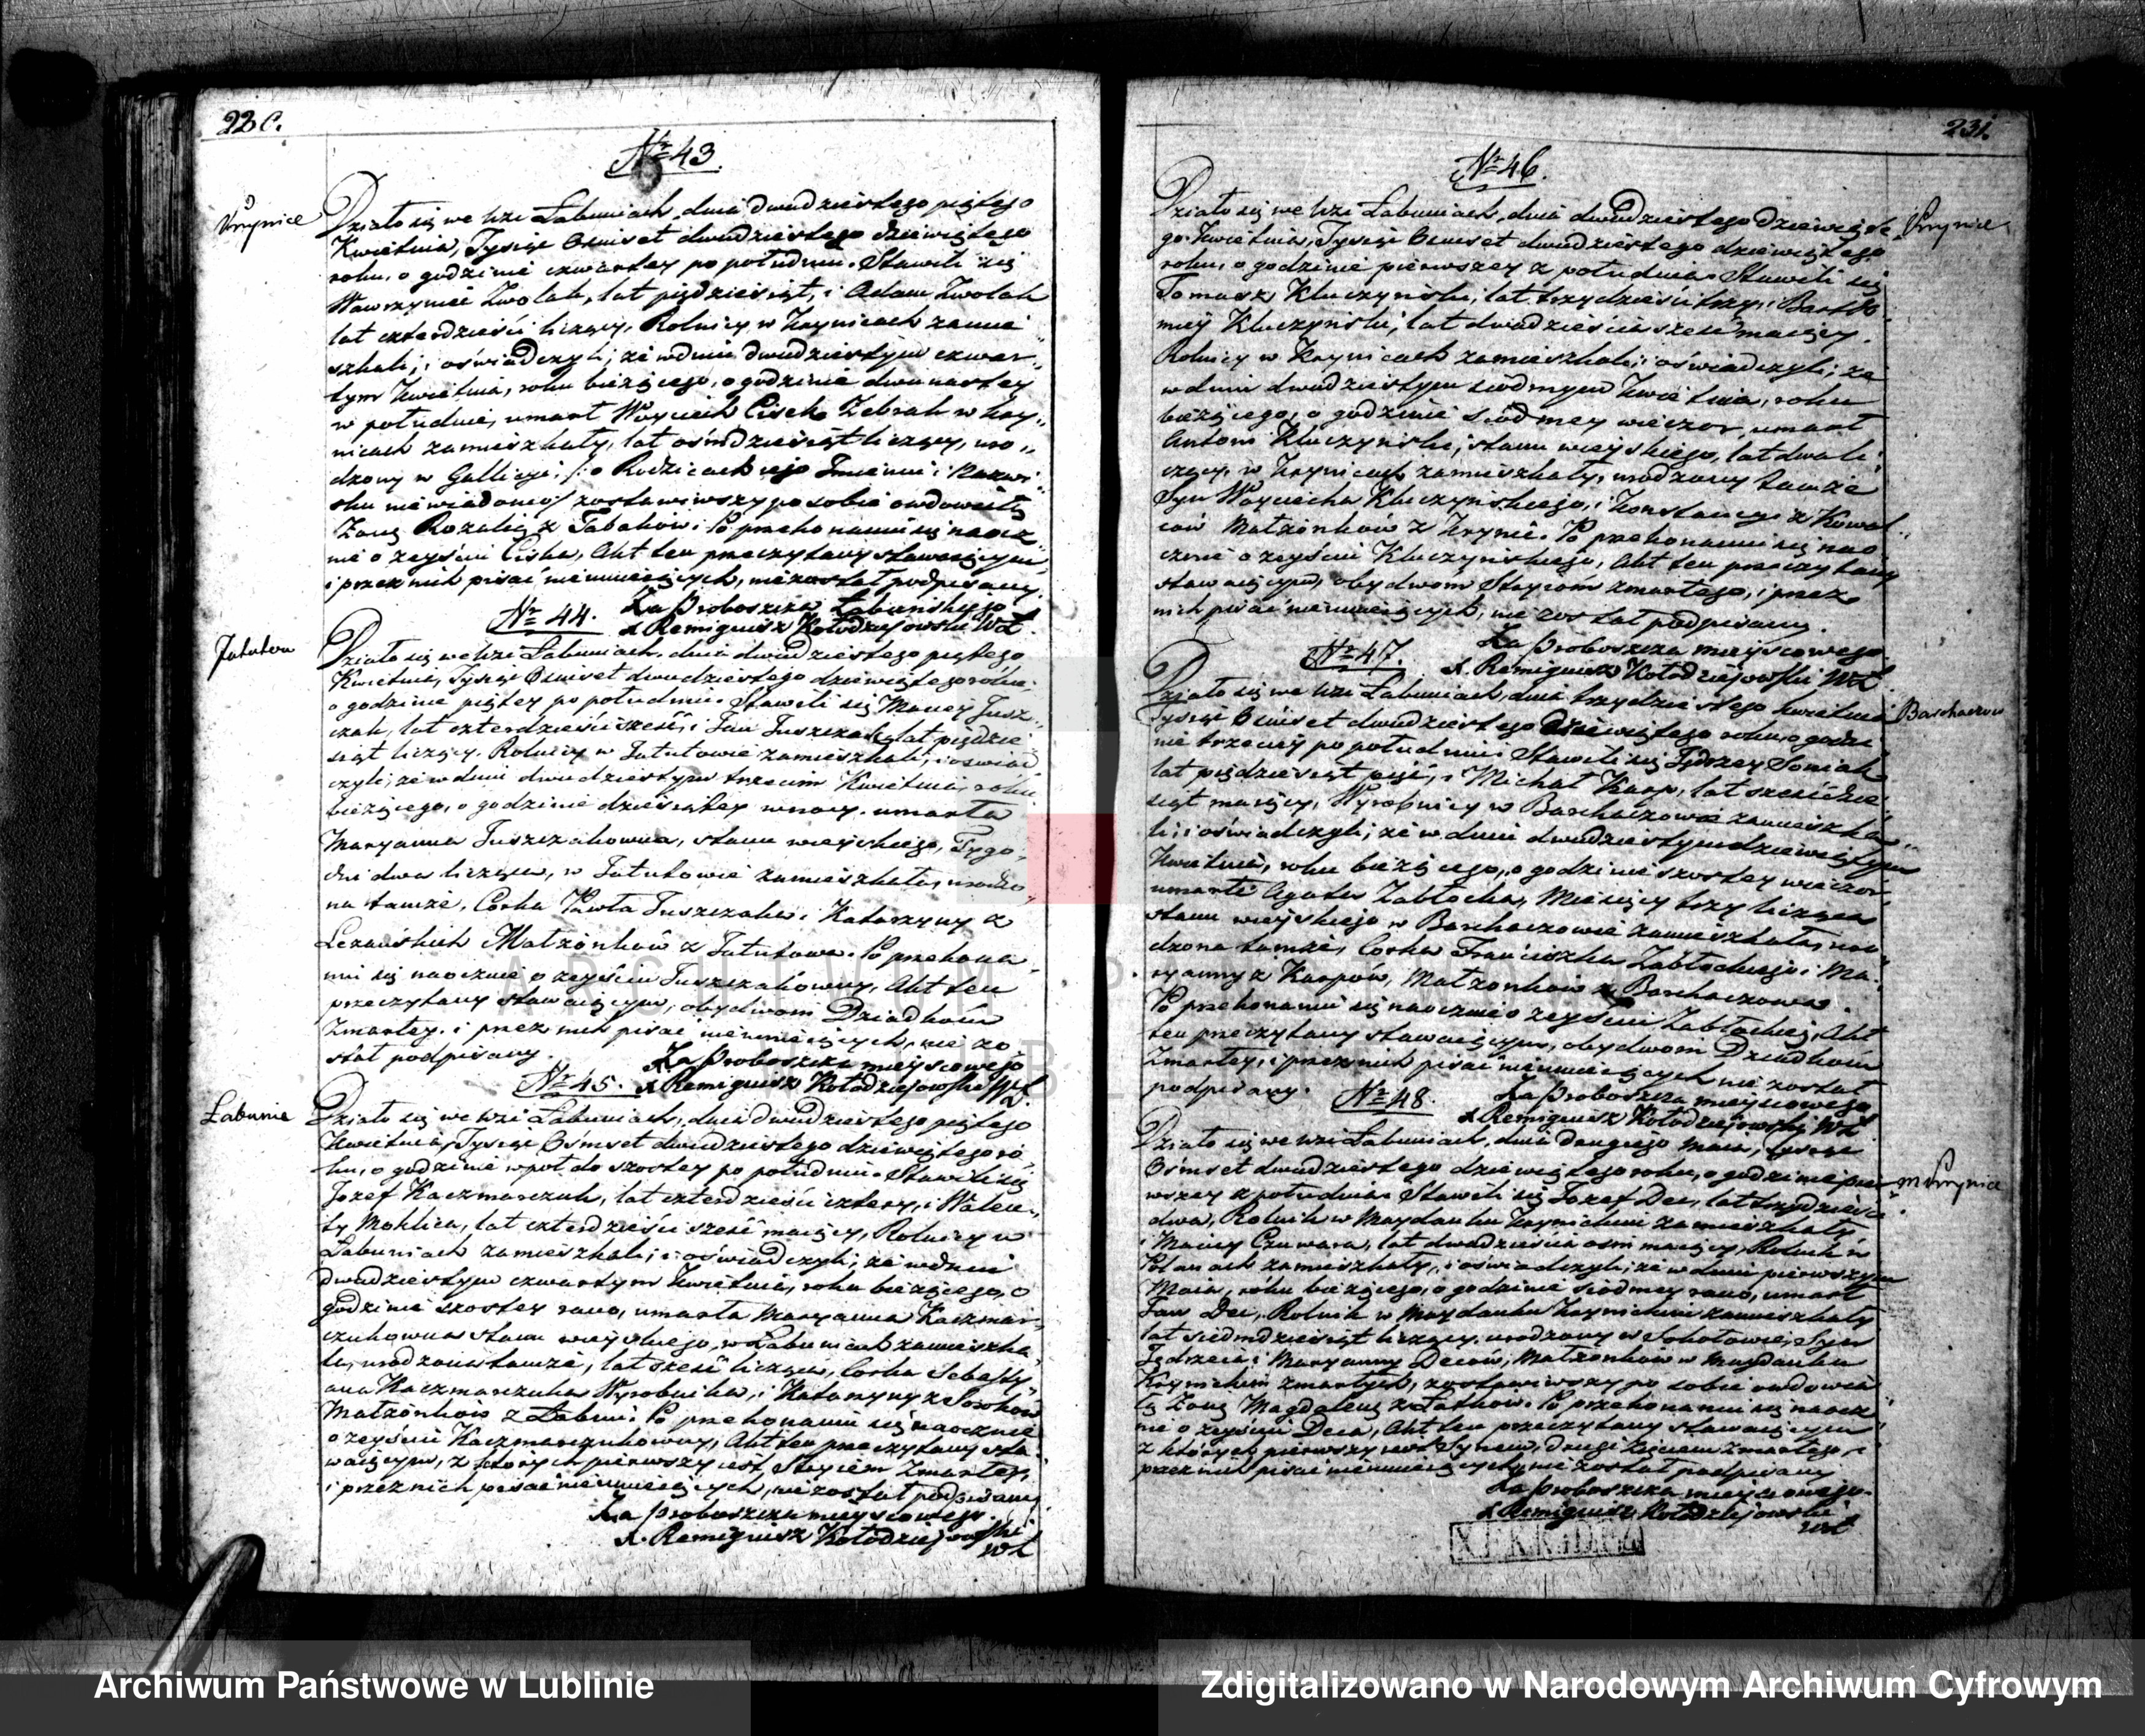 230.
№ 43.
Krynice
Działo się we Wsi Łabuniach, dnia dwudziestego piątego
Kwietnia, Tysiąc Ośmset dwudziestego dziewiątego
roku, o godzinie czwartey po południu. Stawili się
Wawrzyniec Zwolak, lat pięćdziesiąt, i Adam Zwolak
lat czterdzieści liczący, Rolnicy w Krynicach zamie„
szkali; i oświadczyli; że w dniu dwudziestym czwar„
tym Kwietnia, roku bieżącego, o godzinie dwunastey
w południe, umarł Woyciech Ciseł, Żebrak w Kry„
nicach zamieszkały, lat ośmdziesiąt liczący, uro„
dzony w Gallicyi, /: o Rodzicach iego Imieniu i Nazwi„
sku niewiadomo :/ zostawiwszy po sobie owdowiałą
Żonę Rozalię z Tabaków. Po przekonaniu się naocz„
nie o zeyściu Cisła, Akt ten przeczytany stawaiącym,
i przez nich pisać nieumieiących, niezostał podpisany.
Za Proboszcza Łabuńskiego
X Remigiusz Kołodziejowski WŁ
№ 44.
Tatutów
Działo się we Wsi Łabuniach, dnia dwudziestego piątego
Kwietnia, Tysiąc Ośmset dwudziestego dziewiątego roku,
o godzinie piątey po południu. Stawili się Maciey Tusz„
czak, lat czterdzieści sześć, i Jan Tuszczak, lat pięćdzie„
siąt liczący, Rolnicy w Tatutowie zamieszkali; i oświad„
czyli; że w dniu dwudziestym trzecim Kwietnia, roku
bieżącego, o godzinie dziesiątey w nocy, umarła
Maryanna Tuszczakowna, stanu wieyskiego, Tygo„
dni dwa licząca, w Tatutowie zamieszkała, urodzo„
na tamże, Corka Pawła Tuszczaka i Katarzyny z
Lezańskich Małżonków z Tatutowa. Po przekona„
niu się naocznie o zeyściu Tuszczakówny, Akt ten
przeczytany stawaiącym, obydwom Dziadkom
Zmarłey, i przez nich pisać nieumieiących, nie zo„
stał podpisany.
Za Proboszcza mieyscowego
X Remigiusz Kołodziejowski WŁ
№ 45.
Łabunie
Działo się we Wsi Łabuniach, dnia dwudziestego piątego
Kwietnia, Tysiąc Ośmset dwudziestego dziewiątego ro„
ku, o godzinie wpół do szostey po południu. Stawili się
Jozef Kaczmarczuk, lat czterdzieści cztery, i Walen„
ty Moklica, lat czterdzieści sześć maiący, Rolnicy w
Łabuniach zamieszkali; i oświadczyli; że w dniu
dwudziestym czwartym Kwietnia, roku bieżącego, o
godzinie szostey rano, umarła Maryanna Kaczmar„
czukowna stanu wieyskiego, w Łabuniach zamieszka„
ła, urodzona tamże, lat sześć licząca, Corka Sebasty„
ana Kaczmarczuka Wyrobnika, i Katarzyny z Sorokow
Małżonków z Łabuń. Po przekonaniu się naocznie
o zeyściu Kaczmarczukowny, Akt ten przeczytany sta„
waiącym, z ktorych pierwszy iest Stryiem Zmarłey,
i przez nich pisać nieumieiących, nie został podpisany.
Za Proboszcza mieyscowego.
X. Remigiusz Kołodziejowski
WŁ
231.
№ 46.
Krynice
Działo się we Wsi Łabuniach, dnia dwudziestego dziewiąte„
go Kwietnia, Tysiąc Ośmset dwudziestego dziewiątego
roku, o godzinie pierwszey z południa. Stawili się
Tomasz Kluczyński, lat trzydzieści trzy, i Bartło„
miey Kluczyński, lat dwadzieścia sześć maiący,
Rolnicy w Krynicach zamieszkali; i oświadczyli; że
w dniu dwudziestym siódmym Kwietnia, roku
bieżącego, o godzinie siódmey wieczor, umarł
Antoni Kluczyński, stanu wieyskiego, lat dwa li„
czący, w Krynicach zamieszkały, urodzony tamże
Syn Woyciecha Kluczyńskiego, i Konstancyi z Kowal„
ców Małżonków z Krynic. Po przekonaniu się nao„
cznie o zeyściu Kluczyńskiego, Akt ten przeczytany
stawaiącym, obydwom Stryiom zmarłego, i przez
nich pisać nieumieiących, nie został podpisany.
Za Proboszcza mieyscowego
X. Remigiusz Kołodziejowski WŁ
№ 47.
Barchaczow
Działo się we Wsi Łabuniach, dnia trzydziestego Kwietnia
Tysiąc Ośmset dwudziestego dziewiątego roku, o godzi„
nie trzeciey po południu. Stawili się Jędrzey Soniak
lat pięćdziesiąt pięć, i Michał Karp, lat sześćdzie„
siąt maiący, Wyrobnicy w Barchaczowie zamieszka„
li; i oświadczyli; że w dniu dwudziestym dziewiątym
Kwietnia, roku bieżącego, o godzinie szostey wieczor,
umarła Agata Zabłocka, Miesięcy trzy licząca
stanu wieyskiego w Barchaczowie zamieszkała, uro„
dzona tamże, Corka Franciszka Zabłockiego i Ma„
ryanny z Karpów, Małżonków z Barchaczowa.
Po przekonaniu się naocznie o zeyściu Zabłockiey, Akt
ten przeczytany stawaiącym, obydwom Dziadkom
Zmarłey, i przez nich pisać nieumieiących nie został
podpisany.
Za Proboszcza mieyscowego
X Remigiusz Kołodziejowski WŁ
№ 48.
M Krynice
Działo się we Wsi Łabuniach, dnia drugiego Maia, Tysiąc
Ośmset dwudziestego dziewiątego roku, o godzinie pier„
wszey z południa. Stawili się Jozef Dec, lat trzydzieści
dwa, Rolnik w Maydanku Krynickim zamieszkały
i Maciey Czuwara, lat dwadzieścia ośm maiący, Rolnik w
zamieszkały, i oświadczyli; że w dniu pierwszym
Maia, roku bieżącego, o godzinie siódmey rano, umarł
Jan Dec, Rolnik w Maydanku Krynickim zamieszkały
lat siedmdziesiąt liczący, urodzony w Sokołowie, Syn
Jędrzeia i Maryanny Deców, Małżonków w Maydanku
Krynickim zmarłych, zostawiwszy po sobie owdowia„
łą Żonę Magdalenę z Łatków. Po przekonaniu się naocz„
nie o zeyściu Deca, Akt ten przeczytany stawaiącym
z których pierwszy iest Synem, drugi Zięciem zmarłego, i
przez nich pisać nieumieiących, nie został podpisany
Za Proboszcza mieyscowego.
X Remigiusz Kołodziejowski
WŁ
ARCHIWUM PAŃSTWOWE
W LUBLINIE
Archiwum Państwowe w Lublinie
Zdigitalizowano w Narodowym Archiwum Cyfrowym